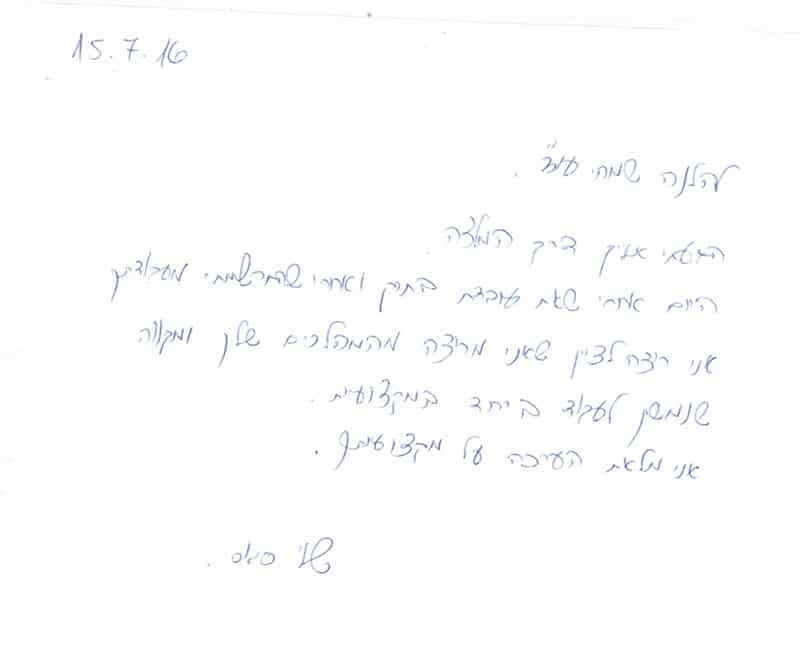 15.7.16
להלנה שמחי עו"ד.
הגעתי אליך דרך המלצה.
היום אחרי שאת עובדת בתיק ואחרי שהתרשמתי מעבודתך
אני רוצה לציין שאני מרוצה מהמהלכים שלך ומקווה
שנמשך לעבוד ביחד במקצועית.
אני מלאת הערכה על מקצועיתך.